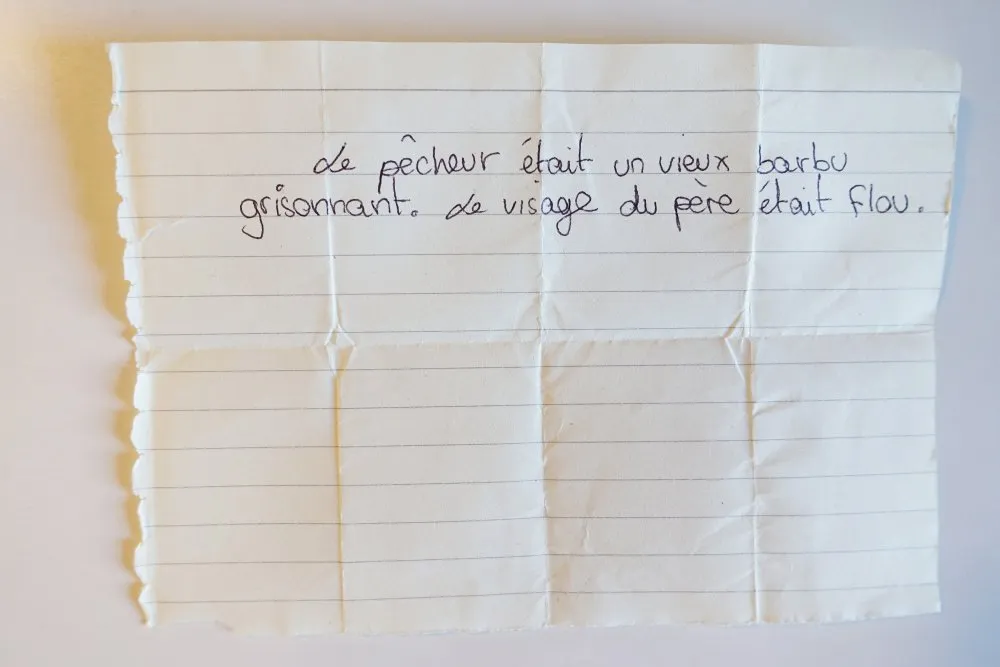 Le pêcheur était un vieux barbu
grisonnant. Le visage du père était flou.